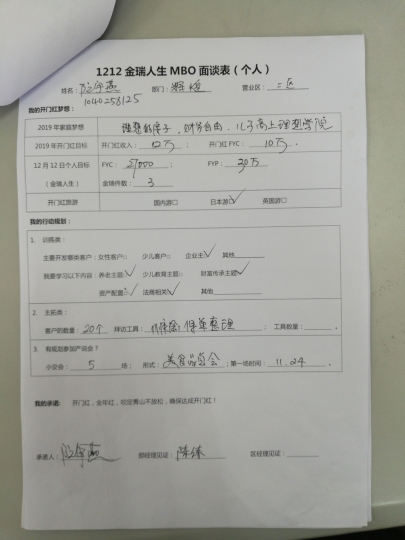 1212金瑞人生MBO面谈表（个人）
姓名： 部门： 营业区：二区
1040258125
我的开门红梦想：
2019年家庭梦想 理想的房子，财务自由，儿子考上理想学院
2019年个人目标 开门红收入：12万 开门红FYC：10万.
12月12日个人目标 FYC：27000 FYP：20万
（金瑞人生） 金瑞件数：3
开门红旅游 国内游□ 日本游□✓ 英国游□
我的行动规划：
1. 训练类：
主要开发哪类客户：女性客户□ 少儿客户□ 企业主□✓ 其他
我要学习以下内容：养老主题□✓ 少儿教育主题□ 财富传承主题□✓
资产配置□✓ 法商相关□✓ 其他
2. 主拓类：
客户的数量：20个 拜访工具：保单整理； 工具数量：.
3. 有规划参加产说会？
小交会：5 场； 形式：美食品尝会；第一场时间：11.24.
我的承诺： 开门红，全年红，咬定青山不放松，确保达成开门红！
承诺人： 部经理见证： 区经理见证：